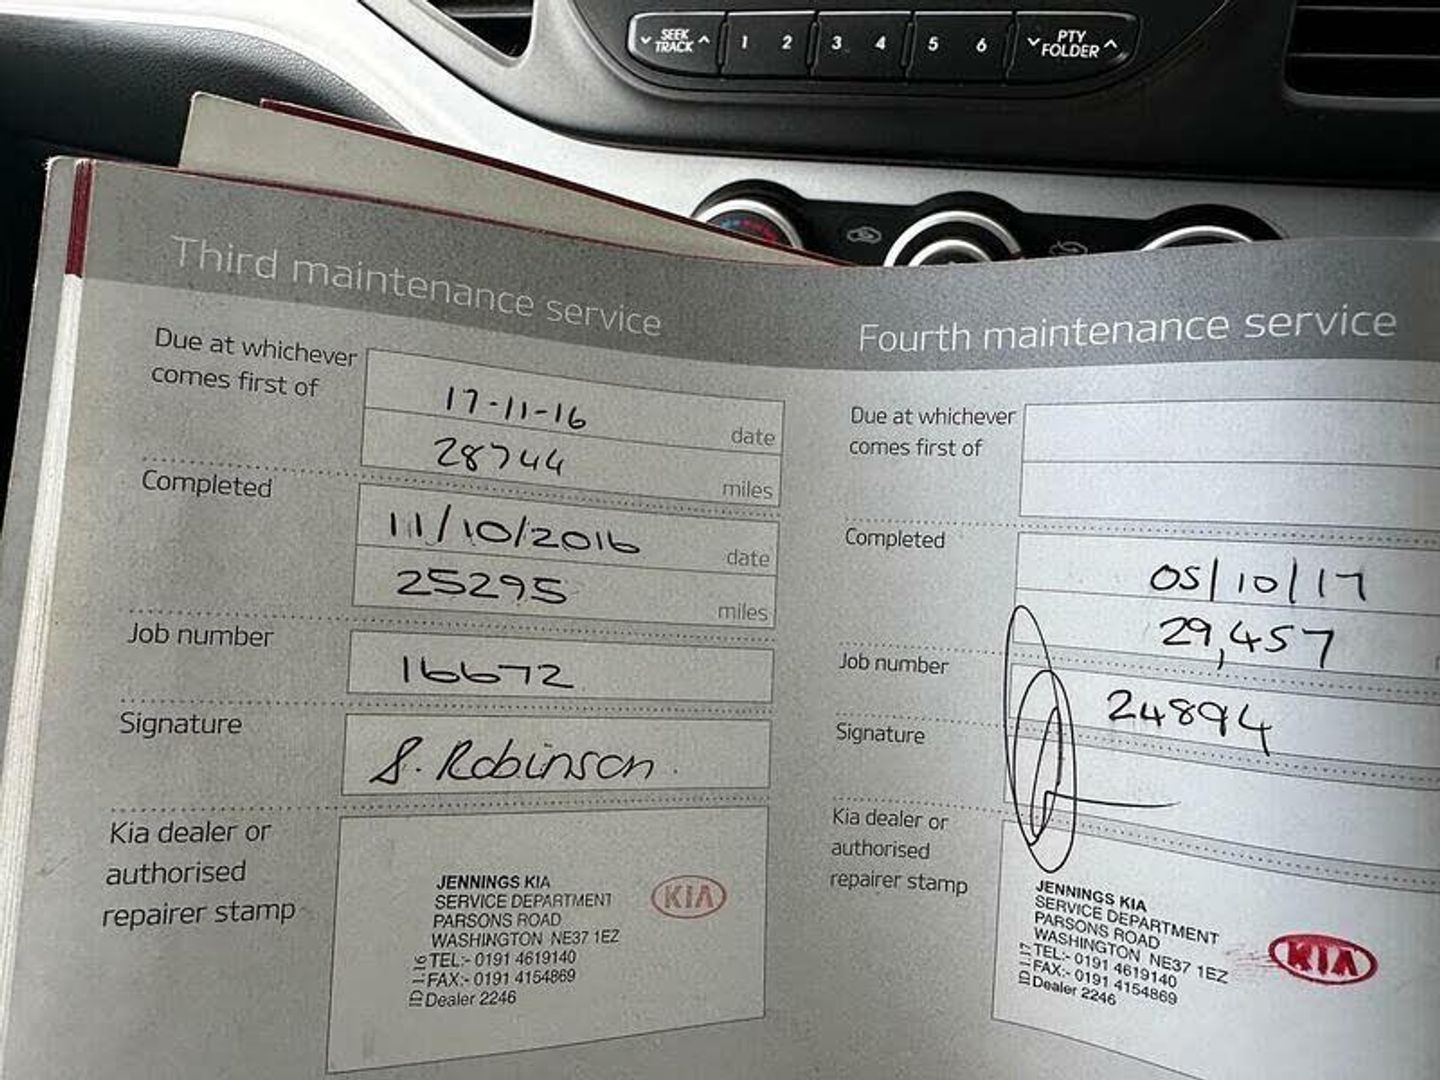 SEEK
TRACK
1 2 3 4 5 6
PTY
FOLDER
Third maintenance service
Due at whichever
comes first of
17-11-16
date
28744
miles
Completed
11/10/2016
date
25295
miles
Job number
16672
Signature
S. Robinson.
Kia dealer or
authorised
repairer stamp
JENNINGS KIA
SERVICE DEPARTMENT
PARSONS ROAD
WASHINGTON NE37 1EZ
TEL:- 0191 4619140
FAX:- 0191 4154869
Dealer 2246
KIA
Fourth maintenance service
Due at whichever
comes first of
Completed
05/10/17
29,457
Job number
24894
Signature
Kia dealer or
authorised
repairer stamp
JENNINGS KIA
SERVICE DEPARTMENT
PARSONS ROAD
WASHINGTON NE37 1EZ
TEL:- 0191 4619140
FAX:- 0191 4154869
Dealer 2246
KIA